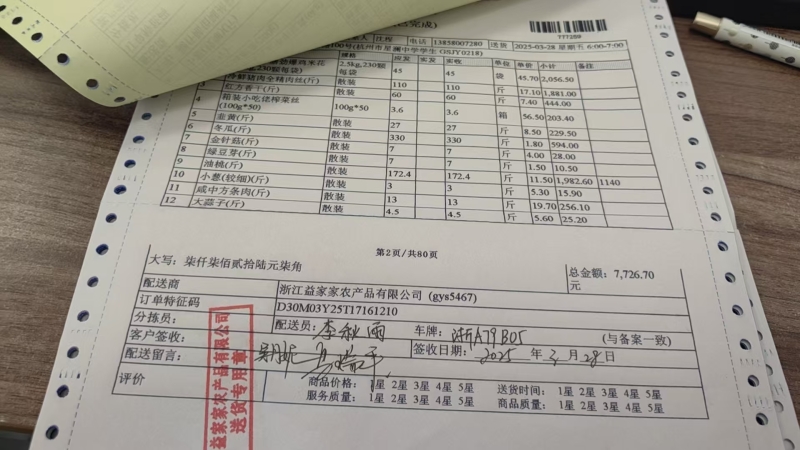 已完成)
777259
电话 13858007280 送货 2025-03-28 星期五 6:00-7:00
100号(杭州市星澜中学学生 GSJY0218)
规格 应发 实发 实收 单位 单价 小计 备注
2.5kg,230颗每袋 45 45 袋 45.70 2,056.50
冷鲜猪肉全精肉丝(斤) 散装 110 110 斤 17.10 1,881.00
红方香干(斤) 散装 60 60 斤 7.40 444.00
4 箱装小吃佬榨菜丝(100g*50) 100g*50 3.6 3.6 箱 56.50 203.40
5 韭黄(斤) 散装 27 27 斤 8.50 229.50
6 冬瓜(斤) 散装 330 330 斤 1.80 594.00
7 金针菇(斤) 散装 7 7 斤 4.00 28.00
8 绿豆芽(斤) 散装 7 7 斤 1.50 10.50
9 油桃(斤) 散装 172.4 172.4 斤 11.50 1,982.60 1140
10 小葱(较细)(斤) 散装 3 3 斤 5.30 15.90
11 咸中方条肉(斤) 散装 13 13 斤 19.70 256.10
12 大蒜子(斤) 散装 4.5 4.5 斤 5.60 25.20
第2页/共80页
大写: 柒仟柒佰贰拾陆元柒角 总金额: 7,726.70元
配送商 浙江益家家农产品有限公司 (gys5467)
订单特征码 D30M03Y25T17161210
分拣员: 配送员: 李秋雨 车牌: 浙A79B05 (与备案一致)
客户签收: 签收日期: 2025 年 3 月 28 日
配送留言:
评价 商品价格: 1星 2星 3星 4星 5星 送货时间: 1星 2星 3星 4星 5星
服务质量: 1星 2星 3星 4星 5星 商品质量: 1星 2星 3星 4星 5星
益家家农产品有限公司
送货专用章